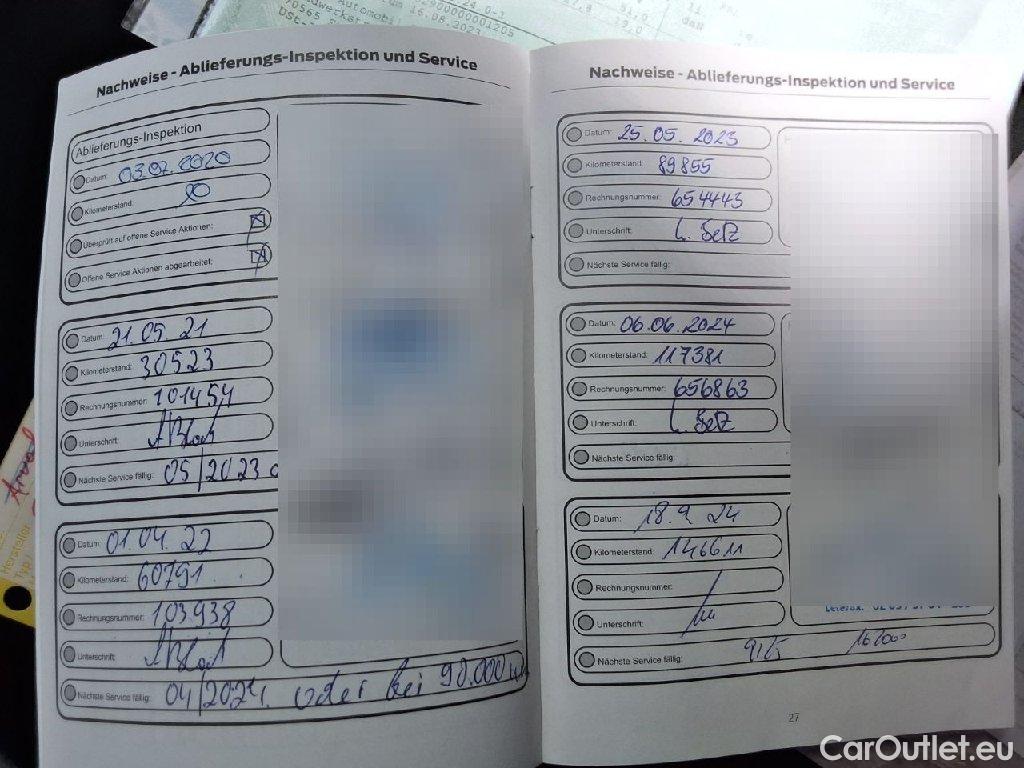 Nachweise - Ablieferungs-Inspektion und Service
Ablieferungs-Inspektion
Datum: 03.07.2020
Kilometerstand: 20
Überprüft auf offene Service Aktionen:
Offene Service Aktionen abgearbeitet:
Datum: 21.05.21
Kilometerstand: 30523
Rechnungsnummer: 101454
Unterschrift:
Nächste Service fällig: 05/2023
Datum: 01.04.22
Kilometerstand: 60791
Rechnungsnummer: 103938
Unterschrift:
Nächste Service fällig: 04/2024 oder bei 90.000 km
Nachweise - Ablieferungs-Inspektion und Service
Datum: 25.05.2023
Kilometerstand: 89855
Rechnungsnummer: 654443
Unterschrift:
Nächste Service fällig:
Datum: 06.06.2024
Kilometerstand: 117381
Rechnungsnummer: 656863
Unterschrift:
Nächste Service fällig:
Datum: 18.9.24
Kilometerstand: 146611
Rechnungsnummer:
Unterschrift:
Nächste Service fällig:
27
CarOutlet.eu